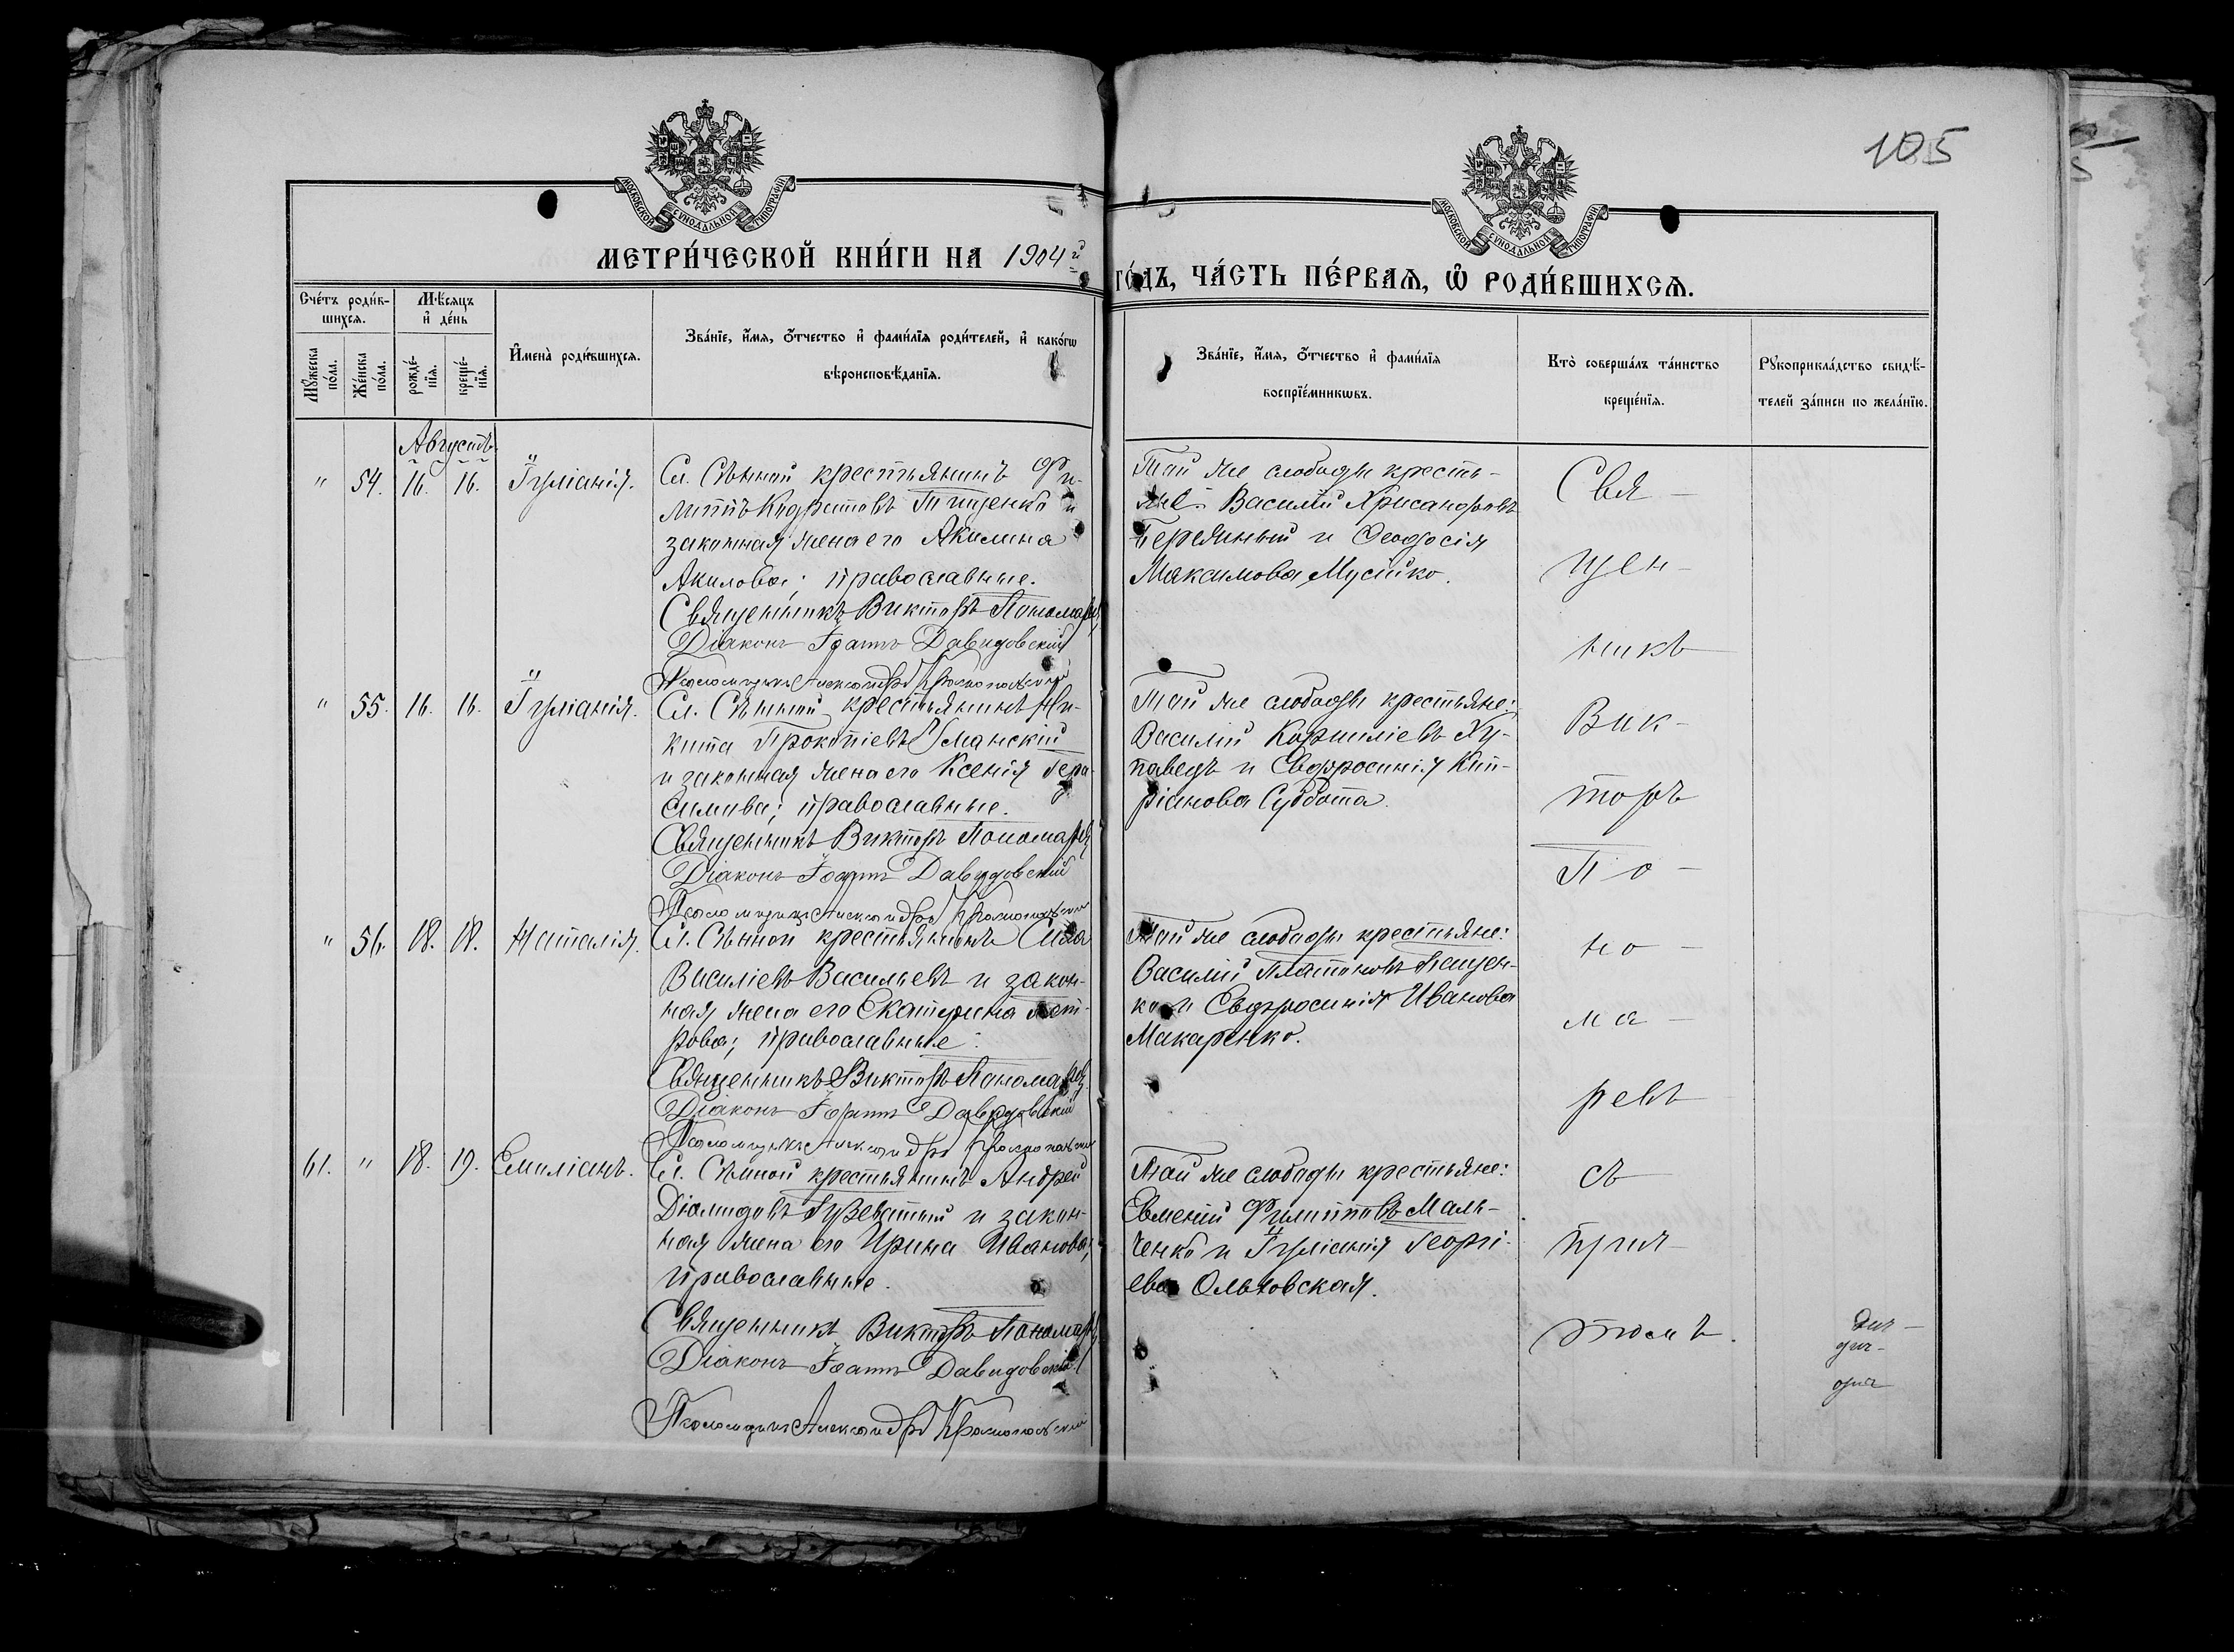 105
МОСКОВСКОЙ СΥНОДАЛЬНОЙ ТИПОГРАФІИ
МОСКОВСКОЙ СΥНОДАЛЬНОЙ ТИПОГРАФІИ
МЕТРИ́ЧЕСКОЙ КНИ́ГИ НА 1904 й
ГО́ДЪ, ЧА́СТЬ ПЕ́РВАѦ, Ѿ РОДИ́ВШИХСѦ.
Сче́тъ роди́в-
шихсѧ.
Мѣ́сѧцъ
и҆ де́нь
Мꙋ́жеска
по́ла.
Же́нска
по́ла.
рожде́-
нїѧ.
креще́-
нїѧ.
И҆мена̀ роди́вшихсѧ.
Зва́нїе, и҆́мѧ, ѻ҆́тчество и҆ фами́лїѧ роди́телей, и҆ како́гѡ
вѣроисповѣ́данїѧ.
Зва́нїе, и҆́мѧ, ѻ҆́тчество и҆ фами́лїѧ
воспрїе́мникѡвъ.
Кто̀ соверша́лъ та́инство
креще́нїѧ.
Рꙋкоприкла́дство свидѣ́-
телей за́писи по жела́нїю.
Августъ
" 54. 16. 16. Іуліанія.
Сл. Сѣнной крестьянинъ Фи-
липпъ Кодратовъ Тищенко и
законная жена его Акилина
Акилова; православные.
Священникъ Викторъ Пономарев
Діаконъ Іоаннъ Давидовскій
Псаломщикъ Александръ Краснопольскій
Той же слободы кресть-
яне: Василій Хрисанфовъ
и Феодосія
Максимова Мусійко.
" 55. 16. 16. Іуліанія.
Сл. Сѣнной крестьянинъ Ни-
кита Прокопіевъ Уманскій
и законная жена его Ксенія Гера-
симова; православные.
Священникъ Викторъ Пономарев
Діаконъ Іоаннъ Давидовскій
Псаломщикъ Александръ Краснопольскій
Той же слободы крестьяне:
Василій Корниліевъ Ху-
паведъ и Евфросинія Кип-
ріанова Суббота.
" 56. 18. 18. Наталія.
Сл. Сѣнной крестьянинъ Сила
Василіевъ Васильевъ и закон-
ная жена его Екатерина Пет-
рова; православные.
Священникъ Викторъ Пономарев
Діаконъ Іоаннъ Давидовскій
Псаломщикъ Александръ Краснопольскій
Той же слободы крестьяне:
Василій Платоновъ Пащен-
ко и Евфросинія Иванова
Макаренко.
61. " 18. 19. Емиліанъ.
Сл. Сѣнной крестьянинъ Андрей
Діомидовъ Гузеватый и закон-
ная жена его Ирина Иванова;
православные.
Священникъ Викторъ Пономарев
Діаконъ Іоаннъ Давидовскій
Псаломщикъ Александръ Краснопольскій
Той же слободы крестьяне:
Евмений Филипповъ Маль-
ченко и Іуліанія Георгі-
ева Ольховская.
Свя-
щен-
никъ
Вик-
торъ
По-
но-
ма-
ревъ
съ
прич-
томъ.